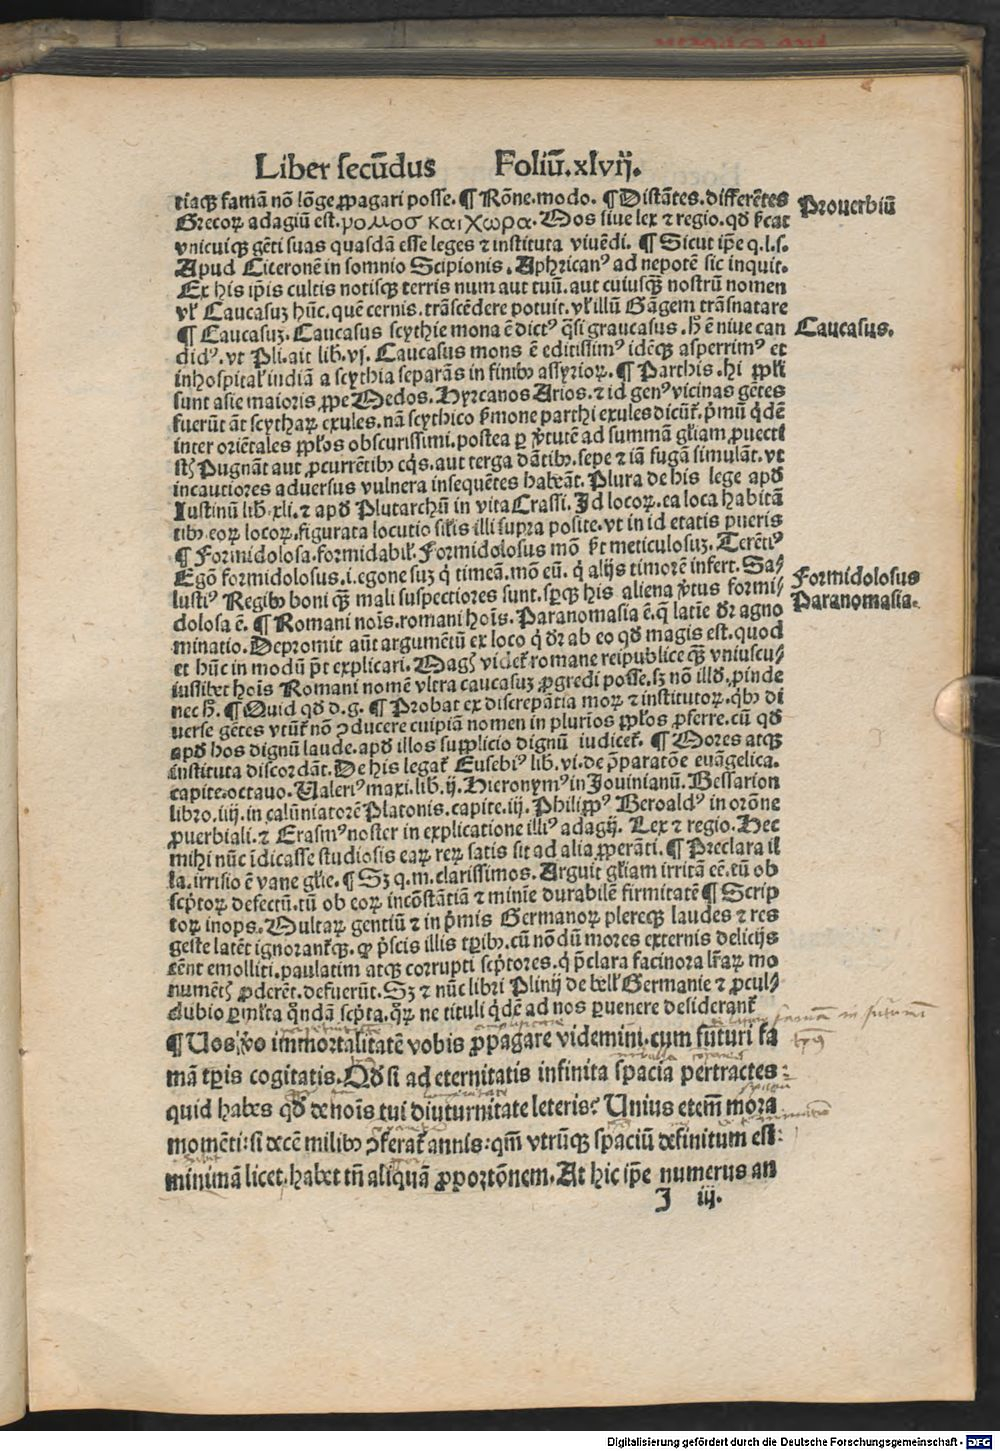 Liber secūdus Foliū.xlvij.
tiaqꝫ famā nō lōge ꝓpagari posse. ¶ Rōne.modo. ¶ Distātes.differētes
Grecoꝝ adagiū est. ρομοσ και χωρα. Mos siue lex ⁊ regio. qd̄ p̄cat
vnicuiqꝫ gēti suas quasdā esse leges ⁊ instituta viuēdi. ¶ Sicut ip̄e q.l.s.
Apud Ciceronē in somnio Scipionis. Aphricanꝰ ad nepotē sic inquit.
Ex his ip̄is cultis notisqꝫ terris num aut tuū. aut cuiusqꝫ nostrū nomen
vƚ Caucasuꝫ hūc. quē cernis. trāscēdere potuit. vƚ illū Gāgem trāsnatare
¶ Caucasuꝫ. Caucasus scythie mona ē dictꝰ q̄si graucasus. h̄ ē niue can
didꝰ. vt Pli. ait lib. vj. Caucasus mons ē editissimꝰ idēqꝫ asperrimꝰ et
inhospitaƚ indiā a scythia separās in finibꝰ assyrioꝝ. ¶ Parthis. hi pp̄li
sunt asie maioris ꝓpe Medos. Hyrcanos Arios. ⁊ id genꝰ vicinas gētes
fuerūt āt scythaꝝ exules. nā scythico ẜmone parthi exules dicūt̄. p̄mū q̇dē
inter oriētales pp̄los obscurissimi. postea ꝑ v̄tutē ad summā gl̄iam ꝓuecti
st̄ Pugnāt aut ꝓcurrētibꝰ eq̇s. aut terga dātibꝰ. sepe ⁊ iā fugā simulāt. vt
incautiores aduersus vulnera insequētes habeāt. Plura de his lege apd̄
Iustinū lib. xli. ⁊ apd̄ Plutarchū in vita Crassi. Id locoꝝ. ea loca habitā
tibꝰ eoꝝ locoꝝ. figurata locutio sil̄is illi supra posite. vt in id etatis pueris
¶ Formidolosa. formidabiƚ. Formidolosus mō p̄t meticulosuꝫ. Terētiꝰ
Egō formidolosus. i. egone suꝫ q̇ timeā. mō eū. q̇ alijs timorē infert. Sa⸗
lustiꝰ Regibꝰ boni qꝫ mali suspectiores sunt. sꝑqꝫ his aliena v̄tus formi⸗
dolosa ē. ¶ Romani nois̄. romani hois̄. Paranomasia ē. q̄ latīe dr̄ agno
minatio. Depromit aūt argumētū ex loco q̇ dr̄ ab eo qd̄ magis est. quod
et hūc in modū p̄t explicari. Maḡ videt̄ romane reipublice qꝫ vniuscu⸗
iuslibet hois̄ Romani nomē vltra caucasuꝫ ꝓgredi posse. sꝫ nō illd̄. ꝓinde
nec h̄. ¶ Quid qd̄ d.g. ¶ Probat ex discrepātia moꝝ ⁊ institutoꝝ. qb̄ꝰ di
uerse gētes vtūt̄ nō ↄducere cuipiā nomen in plurios pp̄los ꝓferre. cū qd̄
apd̄ hos dignū laude. apd̄ illos supplicio dignū iudicet̄. ¶ Mores atqꝫ
instituta discordāt. De his legat̄ Eusebiꝰ lib. vi. de p̄paratōe euāgelica.
capite octauo. Ualeriꝰ maxi. lib. ij. Hieronymꝰ in Jouinianū. Bessarion
libro. iiij. in calūniatorē Platonis. capite. iij. Philippꝰ Beroaldꝰ in orōne
ꝓuerbiali. ⁊ Erasmꝰ noster in explicatione illiꝰ adagij. Lex ⁊ regio. Hec
mihi nūc īdicasse studiosis eaꝝ reꝝ satis sit ad alia ꝓperāti. ¶ Preclara il
la. irrisio ē vane gl̄ie. ¶ Sꝫ q.m. clarissimos. Arguit gl̄iam irritā eē. tū ob
scp̄toꝝ defectū. tū ob eoꝝ incōstātiā ⁊ minīe durabilē firmitatē ¶ Scrip
toꝝ inops. Multaꝝ gentiū ⁊ in p̄mis Germanoꝝ pleræqꝫ laudes ⁊ res
geste latēt ignorant̄qꝫ. ꝙ p̄scis illis tp̄ibꝰ. cū nōdū mores externis delicijs
eēnt emolliti. paulatim atqꝫ corrupti scp̄tores. q̇ p̄clara facinora lr̄aꝝ mo
numēt̄ ꝓderēt. defuerūt. Sꝫ ⁊ nūc libri Plinij de belƚ Germanie ⁊ ꝓcul⸗
dubio ꝑml̄ta q̄ndā scp̄ta. qꝝ ne tituli q̇dē ad nos ꝑuenere desiderant̄
¶ Uos v̄o immortalitatē vobis ꝓpagare videmini. cum futuri fa
mā tp̄is cogitatis. Qd̄ si ad eternitatis infinita spacia pertractes:
quid habes qd̄ de nois̄ tui diuturnitate leteris? Unius etem̄ mora
momēti: si decē milibꝰ ↄferat̄ annis: qm̄ vtrūqꝫ spaciū definitum est:
minimā licet. habet tn̄ aliquā ꝓportōnem. At hic ip̄e numerus an
J iij.
Prouerbiū
Caucasus.
Formidolosus
Paranomasia.
Digitalisierung gefördert durch die Deutsche Forschungsgemeinschaft - DFG